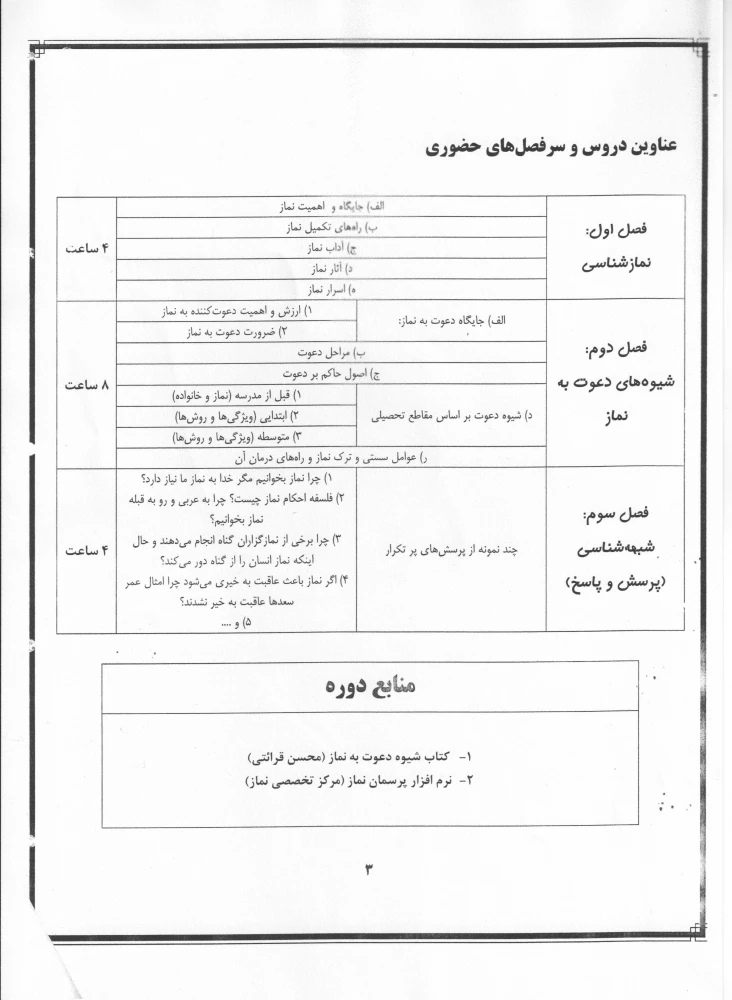 عناوین دروس و سرفصل‌های حضوری
فصل اول:
نمازشناسی
الف) جایگاه و اهمیت نماز
ب) راه‌های تکمیل نماز
ج) آداب نماز
د) آثار نماز
ه) اسرار نماز
۴ ساعت
فصل دوم:
شیوه‌های دعوت به
نماز
الف) جایگاه دعوت به نماز:
۱) ارزش و اهمیت دعوت‌کننده به نماز
۲) ضرورت دعوت به نماز
ب) مراحل دعوت
ج) اصول حاکم بر دعوت
د) شیوه دعوت بر اساس مقاطع تحصیلی
۱) قبل از مدرسه (نماز و خانواده)
۲) ابتدایی (ویژگی‌ها و روش‌ها)
۳) متوسطه (ویژگی‌ها و روش‌ها)
ر) عوامل سستی و ترک نماز و راه‌های درمان آن
۸ ساعت
فصل سوم:
شبهه‌شناسی
(پرسش و پاسخ)
چند نمونه از پرسش‌های پر تکرار
۱) چرا نماز بخوانیم مگر خدا به نماز ما نیاز دارد؟
۲) فلسفه احکام نماز چیست؟ چرا به عربی و رو به قبله
نماز بخوانیم؟
۳) چرا برخی از نمازگزاران گناه انجام می‌دهند و حال
اینکه نماز انسان را از گناه دور می‌کند؟
۴) اگر نماز باعث عاقبت به خیری می‌شود چرا امثال عمر
سعدها عاقبت به خیر نشدند؟
۵) و ....
۴ ساعت
منابع دوره
۱- کتاب شیوه دعوت به نماز (محسن قرائتی)
۲- نرم افزار پرسمان نماز (مرکز تخصصی نماز)
۳